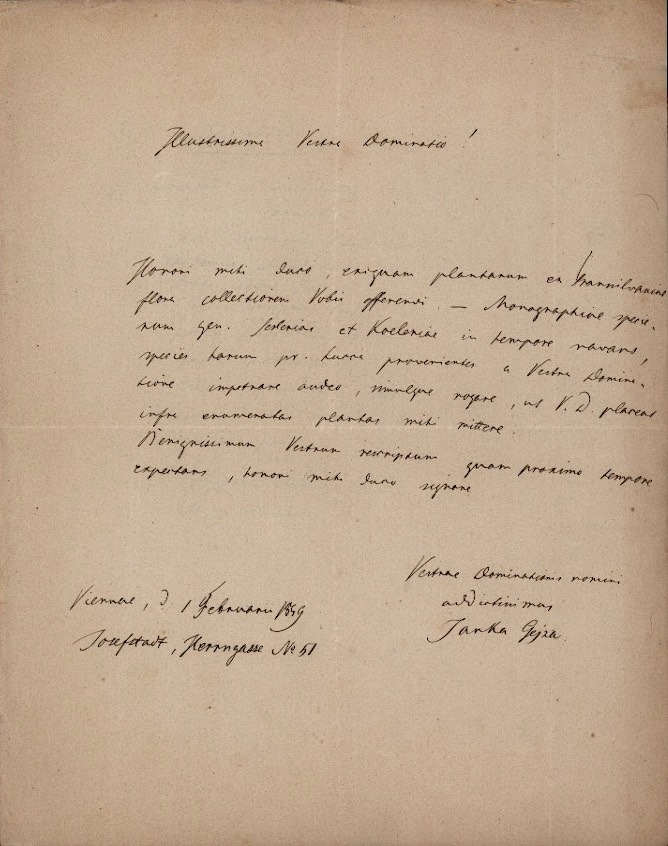 Illustrissima Vestra Dominatio!
Honori mihi duco, exiguam plantarum ex Transilvanica
flora collectionem Vobis offerendi. — Monographiae specie-
rum gen. Sesleriae et Koeleriae in tempore
species harum pr. provenientes a Vestra Domina-
tione impetrare audeo, simulque rogare, ut V. D. placeat
infra enumeratas plantas mihi mittere.
Benignissimum Vestrum rescriptum quam proximo tempore
expectans, honori mihi duco signare
Vestrae Dominationis nomini
addictissimus
Janka
Viennae, d. 1 Februarii 1859
Josefstadt, Herrngasse No 51